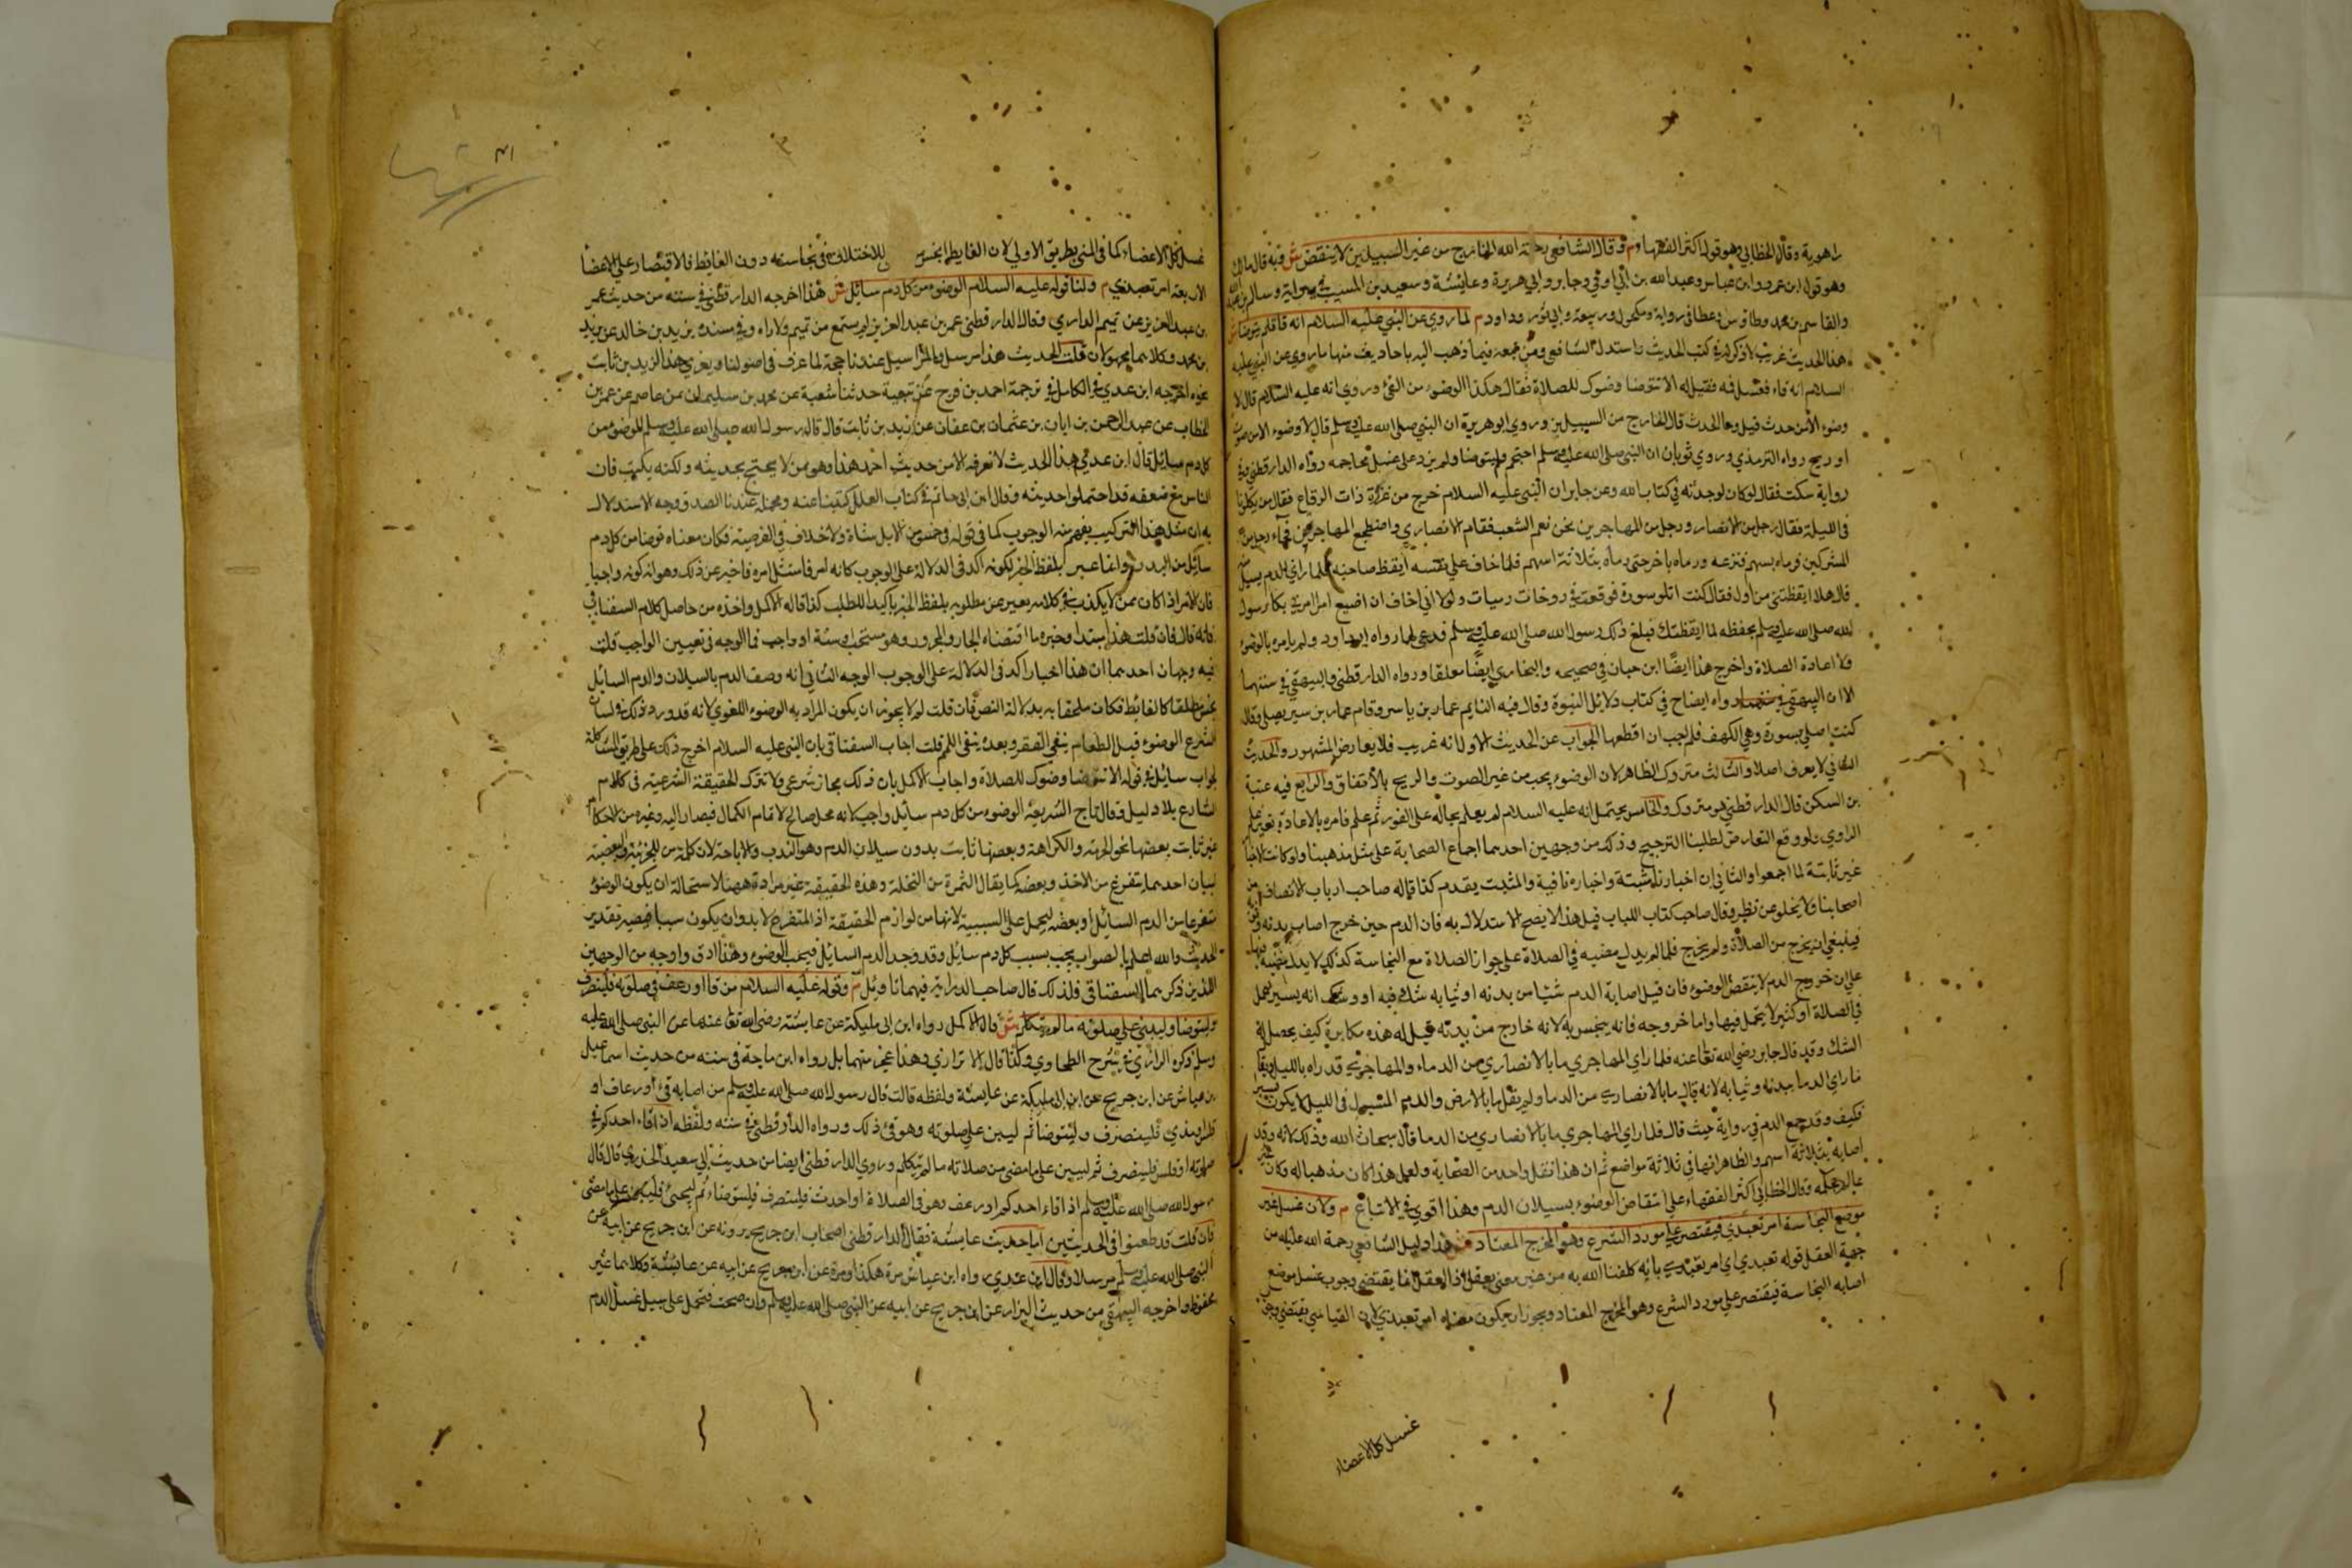 راهوية وقال الخطابي وهو قول اكثر الفقهاء م وقال الشافعي رحمة الله الخارج من غير السبيلين لا ينقض ش وبه قال مالك
وهو قول ابن عمر وابن عباس وعبد الله بن ابي اوفي وجابر وابي هريرة وعايشة وسعيد بن المسيب في رواية وسالم بن عبد الله
والقاسم بن محمد وطاوس وعطا في رواية ومكحول وربيعة وابي ثور وداود م لما روي عن النبي عليه السلام انه قا فلم يتوضا ش
هذا الحديث غريب لا ذكر له في كتب الحديث واستدل الشافعي ومن معه فيما ذهب اليه باحاديث منها ما روي عن النبي عليه
السلام انه قاء فغسل فمه فقيل له الا تتوضا وضوك للصلاة فقال هكذا الوضوء من القئ وروي انه عليه السلام قال لا
وضوء الا من حدث قيل وما الحدث قال الخارج من السبيلين وروي ابو هريرة ان النبي صلى الله عليه وسلم قال لا وضوء الا من صوت
او ريح رواه الترمذي وروي ثوبان ان النبي صلى الله عليه وسلم احتجم ولم يتوضا ولم يزد على غسل محاجمه رواه الدارقطني وفي
رواية سكت فقال لو كان لوجدته في كتاب الله وعن جابر ان النبي عليه السلام خرج من غزوة ذات الرقاع فقال من يكلونا
في الليلة فقال رجل من الانصار ورجل من المهاجرين نحن نعم الشعب فقام الانصاري واضطجع المهاجري فجاء رجل من
المشركين فرماه بسهم فنزعه ورماه باخر حتى رماه بثلاثة اسهم فلما خاف على نفسه ايقظ صاحبه فلما راي الدم يسيل منه
قال هلا ايقظتني من اول فقال كنت اتلو سورة فوقعت في روحات رميات ولولا اني اخاف ان اضيع امرا امرني بكا رسول
الله صلى الله عليه وسلم بحفظه لما ايقظتك فبلغ ذلك رسول الله صلى الله عليه وسلم فدعى لهما رواه ابو داود ولم يامره بالوضوء
ولا اعادة الصلاة واخرج هذا ايضا ابن حبان في صحيحه والبخاري ايضا معلقا ورواه الدارقطني والبيهقي في سننهما
الا ان البيهقي رواه ايضا في كتاب دلايل النبوة وقال فيه النايم عمار بن ياسر وقام عمار بن بسر يصلي وقال
كنت اصلي بسورة وهي الكهف فلم احب ان اقطعها الجواب عن الحديث الاول انه غريب فلا يعارض المشهور والحديث
الثاني لا يعرف اصلا والثالث متروك الظاهر لان الوضوء يجب من غير الصوت والريح بالاتفاق والرابع فيه عتبة
بن السكن قال الدارقطني هو متروك والخامس يحتمل انه عليه السلام لم يعلم بحاله على الفور ثم علم فامره بالاعادة بغير علم
الراوي ولو وقع التعارض لطلبنا الترجيح وذلك من وجهين احدهما اجماع الصحابة على مثل مذهبنا ولو كانت الاخبار
غير ثابتة لما اجمعوا والثاني ان اخبارنا مثبتة واخباره نافية والمثبت يقدم كذا قاله صاحب ارباب الانصاف من
اصحابنا ولا يخلو عن نظر وقال صاحب كتاب اللباب قيل هذا لا يصح الاستدلال به فان الدم حين خرج اصاب بدنه وثوبه
فينبغي ان يخرج من الصلاة ولم يخرج فلما لم يدل مضيه في الصلاة على جواز الصلاة مع النجاسة كذلك لا يدل مضيه فيها
على ان خروج الدم لا ينقض الوضوء فان قيل اصابة الدم شيا من بدنه او ثيابه شك فيه انه يسير يحمل
في الصلاة او كثير لا يحمل فيها واما خروجه فانه يتجسر به لانه خارج من بدنه قيل له هذه مكابرة كيف يحصل في
الشك وقد قال جابر رضي الله تعالى عنه فلما راي المهاجري ما بالانصاري من الدماء والمهاجري قد راه بالليل وقال
ما راي الدما ببدنه وثيابه لانه قال ما بالانصاري من الدما ولم يقل ما بالارض والدم المشبه في الليل لا يكون يسير
فكيف وقد جمع الدم في رواية حيث قال فلما راي المهاجري ما بالانصاري من الدما قال سبحان الله وذلك لانه وقد
اصابه بثلاثة اسهم والظاهر انها في ثلاثة مواضع ثم ان هذا فعل واحد من الصحابة ولعل هذا كان مذهبا له وكان غير
عالم بحكمه وقال الخطابي اكثر الفقهاء على انتقاض الوضوء بسيلان الدم وهذا اقوي في الاتباع م ولان غسل غير
موضع النجاسة امر تعبدي فيقتصر على مورد الشرع وهو المخرج المعتاد ش هذا دليل الشافعي رحمة الله عليه من
جهة العقل قوله تعبدي اي امر تعبدي بانه كلفنا الله به من غير معنى يعقل اذ العقل انما يقتضي وجوب غسل موضع
اصابه النجاسة فيقتصر على مورد الشرع وهو المخرج المعتاد ويجوز ان يكون معناه امر تعبدي لان القياس يقتضي وجوب
غسل كل الاعضاء
غسل كل الاعضاء كما في المني بطريق الاولي لان الغايط انجس للاختلاف في نجاسته دون الغائط فالاقتصار على الاعضا
الاربعة امر تعبدي م ولنا قوله عليه السلام الوضوء من كل دم سائل ش هذا اخرجه الدارقطني في سننه من حديث عمر
بن عبد العزيز عن تميم الداري وقال الدارقطني عمر بن عبد العزيز لم يسمع من تميم ولا راه وفي سنده يزيد بن خالد عن يزيد
بن محمد وكلاهما مجهولان قلت الحديث هذا مرسل والمراسيل عندنا حجة لما عرف في اصولنا ويعزي هذا لزيد بن ثابت
غيره اخرجه ابن عدي في الكامل في ترجمة احمد بن فرج عن بقية حدثنا شعبة عن محمد بن سليمان بن عاصم عن عمر بن
الخطاب عن عبد الرحمن بن ابان بن عثمان بن عفان عن زيد بن ثابت قال قال رسول الله صلى الله عليه وسلم الوضوء من
كل دم سايل قال ابن عدي هذا الحديث لا نعرفه الا من حديث احمد هذا وهو ممن لا يحتج بحديثه ولكنه يكتب فان
الناس مع ضعفه قد احتملوا حديثه وقال ابن ابي حاتم في كتاب العلل كتبنا عنه ومحله عندنا الصدق ووجه الاستدلال
به ان مثل هذا التركيب يفهم منه الوجوب كما في قوله في خمس من الابل شاة ولا خلاف في الفرضية فكان معناه توضا من كل دم
سائل من البدن وانما عبر بلفظ الخبر لكونه اكد في الدلالة على الوجوب كانه امر فامتثل امره فاخبر عن ذلك وهو انه كونه واجبا
فان الامر اذا كان ممن لا يكذب في كلامه يعبر عن مطلوبه بلفظ الخبر تاكيدا للطلب كذا قاله الاكمل واخذه من حاصل كلام السغناقي
فانه قال فان قلت هذا مبتدا وخبره ما اقتضاه الجار والمجرور وهو مستحب او سنة او واجب فما الوجه في تعيين الواجب قلت
فيه وجهان احدهما ان هذا اخبار اكد في الدلالة على الوجوب الوجه الثاني انه وصف الدم بالسيلان والدم السائل
نجس مطلقا كالغائط فكان ملحقا به بدلالة النص فان قلت لم لا يجوز ان يكون المراد به الوضوء اللغوي لانه قد ورد ذلك في لسان
الشرع الوضوء قبل الطعام ينفي الفقر وبعده ينفي اللمم قلت اجاب السغناقي بان النبي عليه السلام اخرج ذلك على طريق المشاكلة
لجواب سائل في قوله الا تتوضا وضوك للصلاة واجاب الاكمل بان ذلك مجاز شرعي ولا تترك الحقيقة الشرعية في كلام
الشارع بلا دليل وقال تاج الشريعة الوضوء من كل دم سائل واجب لانه محل صالح لاتمام الكمال فيصار اليه وغيره من الاحكام
غير ثابت بعضها نحو الحرمة والكراهة وبعضها ثابت بدون سيلان الدم وهو الندب والاباحة لان كلمة من للجزئية والبعضية
لبيان احدهما يتفرع من الاخذ وبعضه كما يقال الثمرة من النخلة وهذه الحقيقة غير مرادة ههنا لاستحالة ان يكون الوضوء
متفرعا من الدم السائل او بعضه ليحمل على السببية لانها من لوازم الحقيقة اذ المتفرع لا بد وان يكون سببا فيصير تقدير
الحديث والله اعلم بالصواب يجب بسبب كل دم سائل وقد وجد الدم السائل فيجب الوضوء وهذا ادق واوجه من الوجهين
اللذين ذكرهما السغناقي فلذلك قال صاحب الدراية فيهما تاويل م وقوله عليه السلام من قا او رعف في صلوته فلينصرف
وليتوضا وليبني على صلوته ما لم يتكلم ش قال الاكمل رواه ابن ابي مليكة عن عايشة رضي الله تعالى عنها عن النبي صلى الله عليه
وسلم ذكره الرازي في شرح الطحاوي وكذا قال الاترازي وهذا عجز منهما بل رواه ابن ماجة في سننه من حديث اسماعيل
بن عياش عن ابن جريج عن ابن ابي مليكة عن عايشة ولفظه قالت قال رسول الله صلى الله عليه وسلم من اصابه قئ او رعاف او
قلس او مذي فلينصرف وليتوضا ثم ليبن على صلوته وهو في ذلك ورواه الدارقطني في سننه ولفظه اذا قاء احدكم في
صلوته او قلس فلينصرف ثم ليبين على ما مضى من صلاته ما لم يتكلم وروي الدارقطني ايضا من حديث ابي سعيد الخدري قال قال
رسول الله صلى الله عليه وسلم اذا قاء احدكم او رعف وهو في الصلاة او احدث فلينصرف فليتوضاء ثم ليجئ فليبن على ما مضى
فان قلت قد طعنوا في الحديثين اما حديث عايشة فقال الدارقطني اصحاب ابن جريج يروونه عن ابن جريج عن ابيه عن
النبي صلى الله عليه وسلم مرسلا وقال ابن عدي رواه ابن عياش مرة هكذا ومرة عن ابن جريج عن ابيه عن عائشة وكلاهما غير
محفوظ واخرجه البيهقي من حديث البزار عن ابن جريج عن ابيه عن النبي صلى الله عليه وسلم وان صحت فتحمل على سبيل غسل الدم